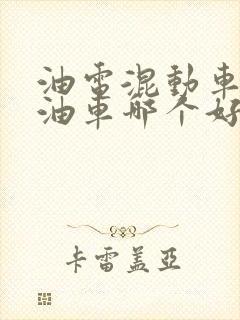 油電混動車
油車哪个好
卡雷盖亞